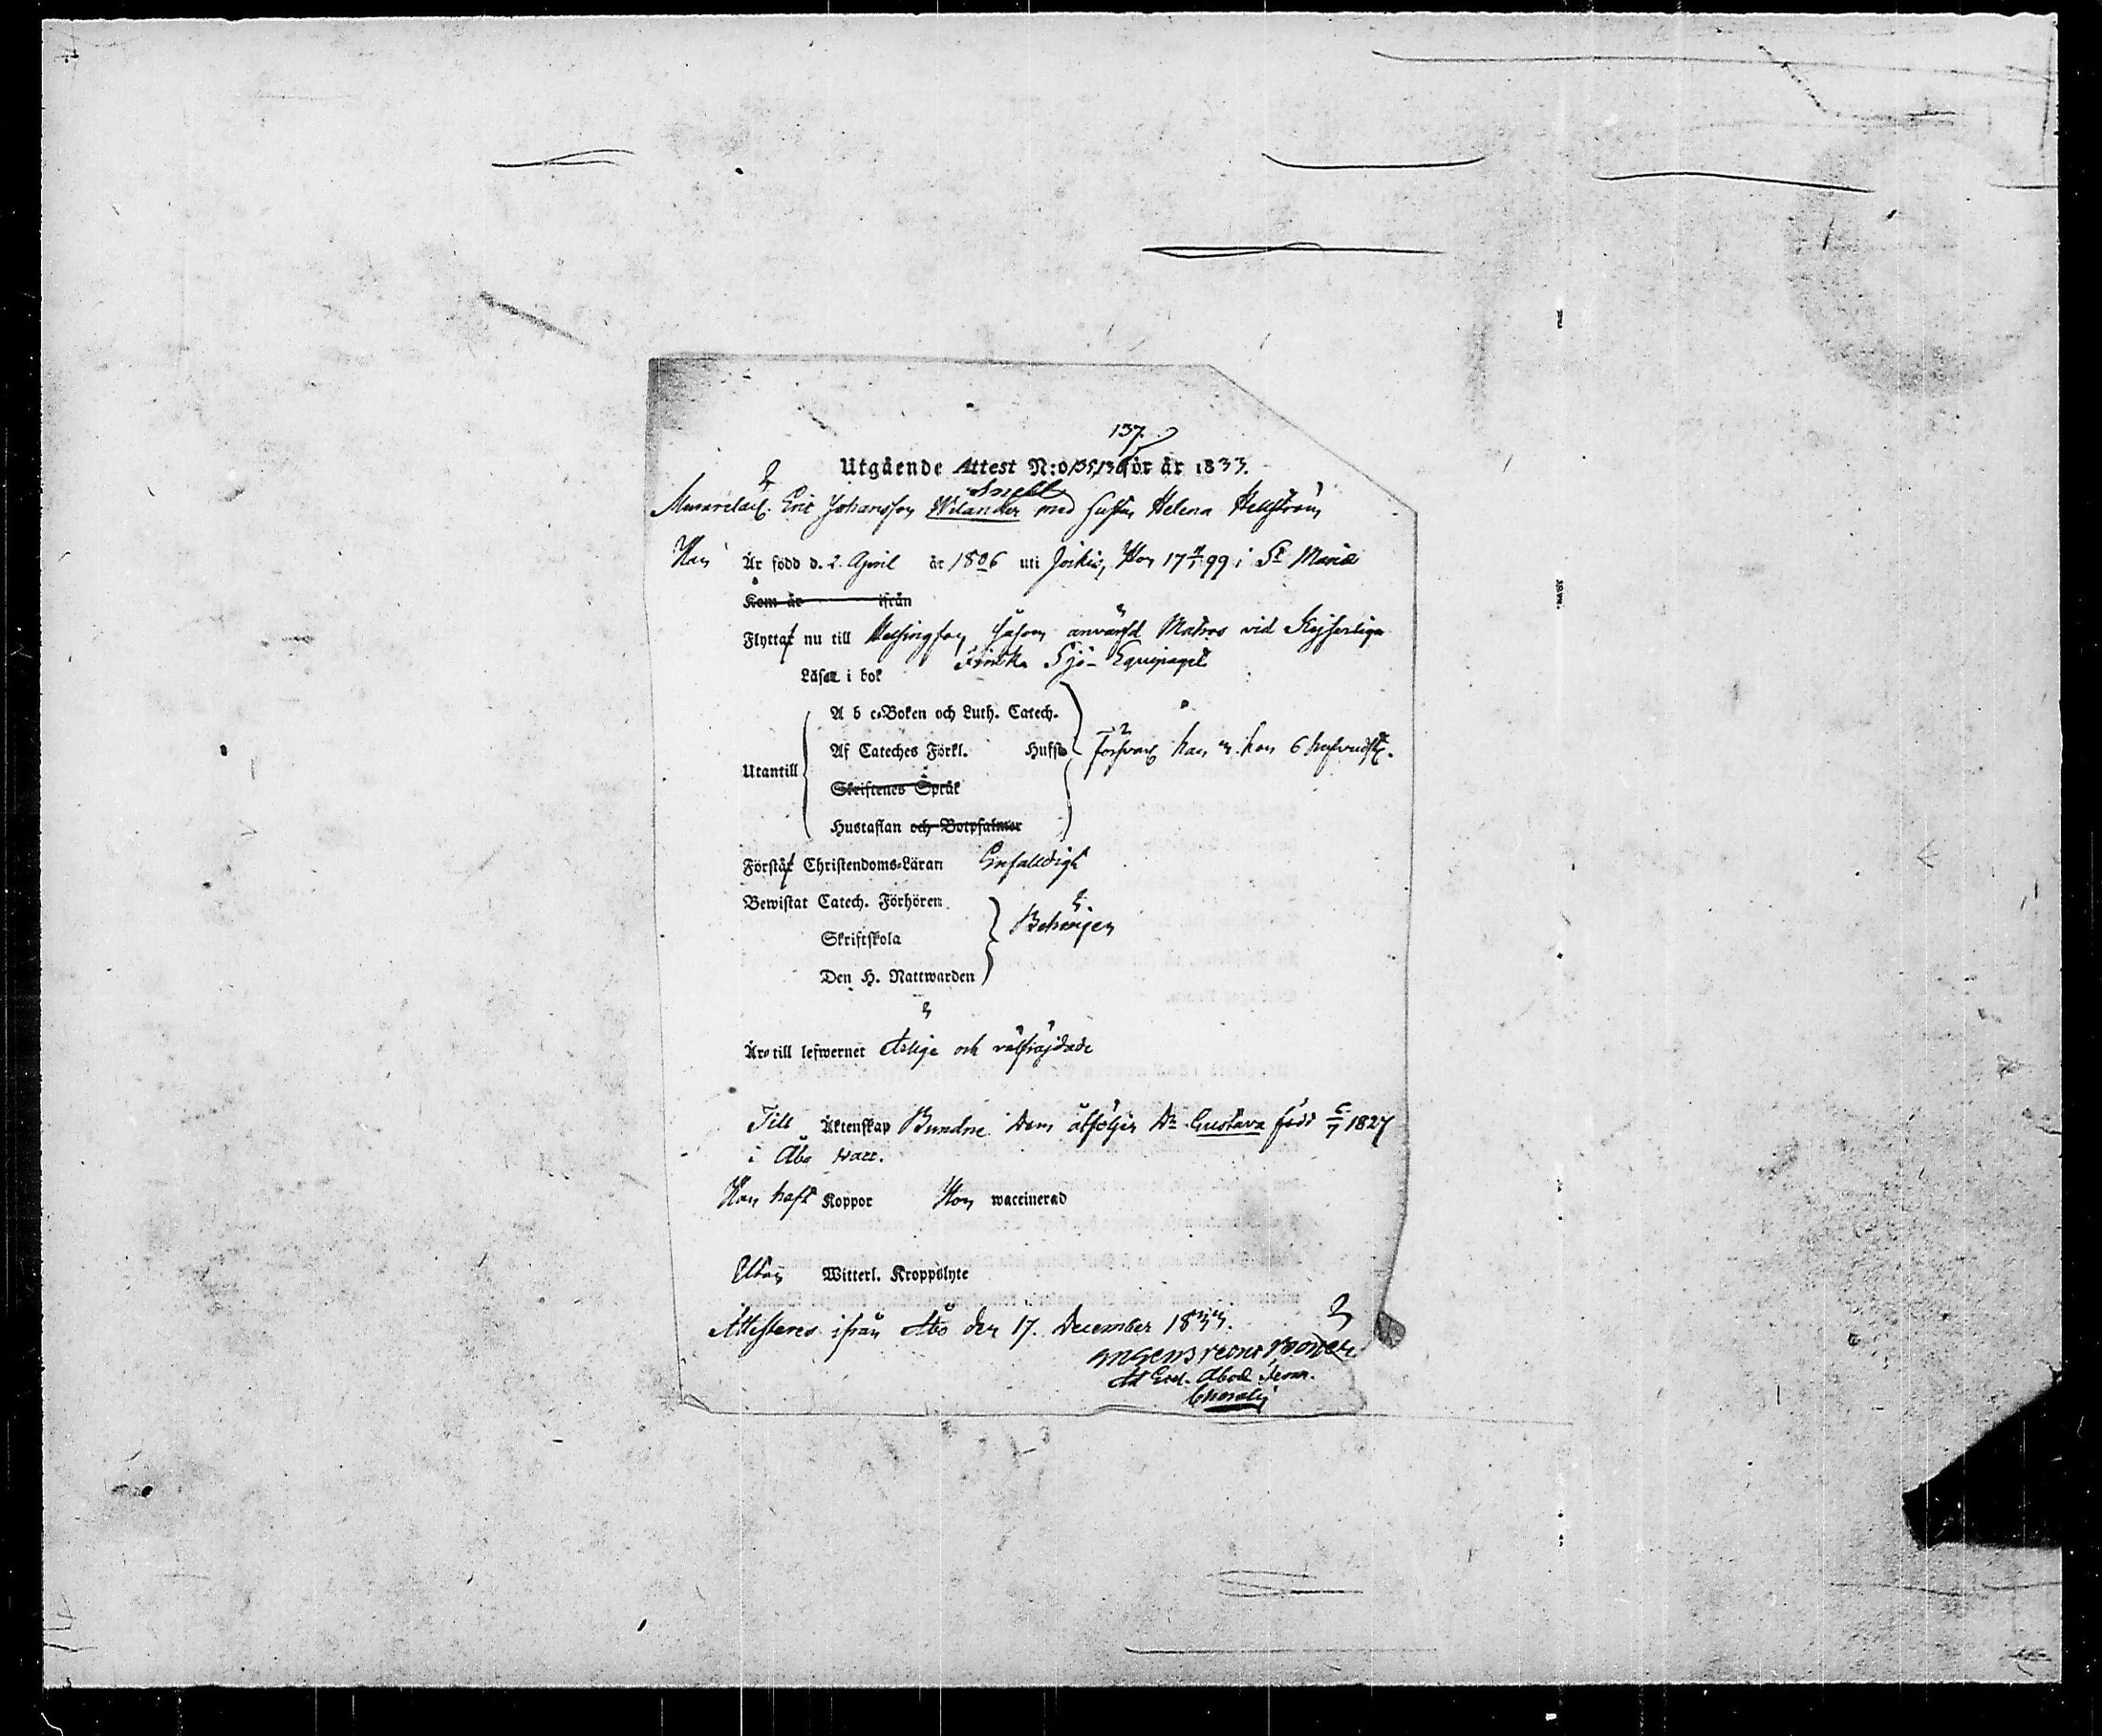 137.
Utgående Attest N:o 135, 136 för år 1833.
Snell
Murarelärl. Eric Johansson Wilander med hustru Helena Hellström
Han Är född d. 2. April år 1806 uti Jockis, Hon 17 99 i St Mariæ
Kom år ifrån
Flyttat nu till Helsingfors såsom anvärfd Matros vid Kejserliga
Finska Sjö-Equipaget
Läser i bok
A b c-Boken och Luth. Catech.
Af Cateches Förkl. Hufst. försvarl. han o. hon 6 hufvudst.
Utantill
Skriftenes Språk
Hustaflan och Botpsalmer
Förstår Christendoms-Läran Enfalldigt
Bewistat Catech. Förhören
Skriftskola Behörigen
Den H. Nattwarden
Äro till lefwernet ärlige och välfräjdade
Till Äktenskap Bundne. Dem åtföljer Dr Gustava född 6/7 1827
i Åbo vacc.
Han haft Koppor Hon waccinerad
Utan Witterl. Kroppslyte
Attesteras ifrån Åbo den 17. December 1833.